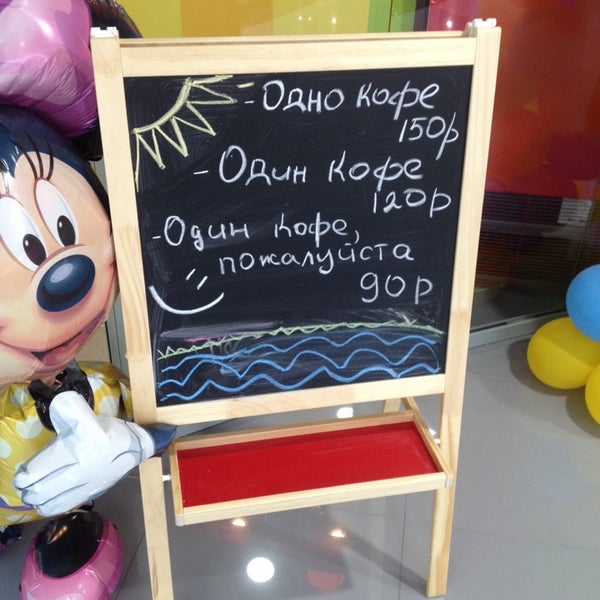 - Одно кофе
150р
- Один кофе
120р
- Один кофе,
пожалуйста
90р